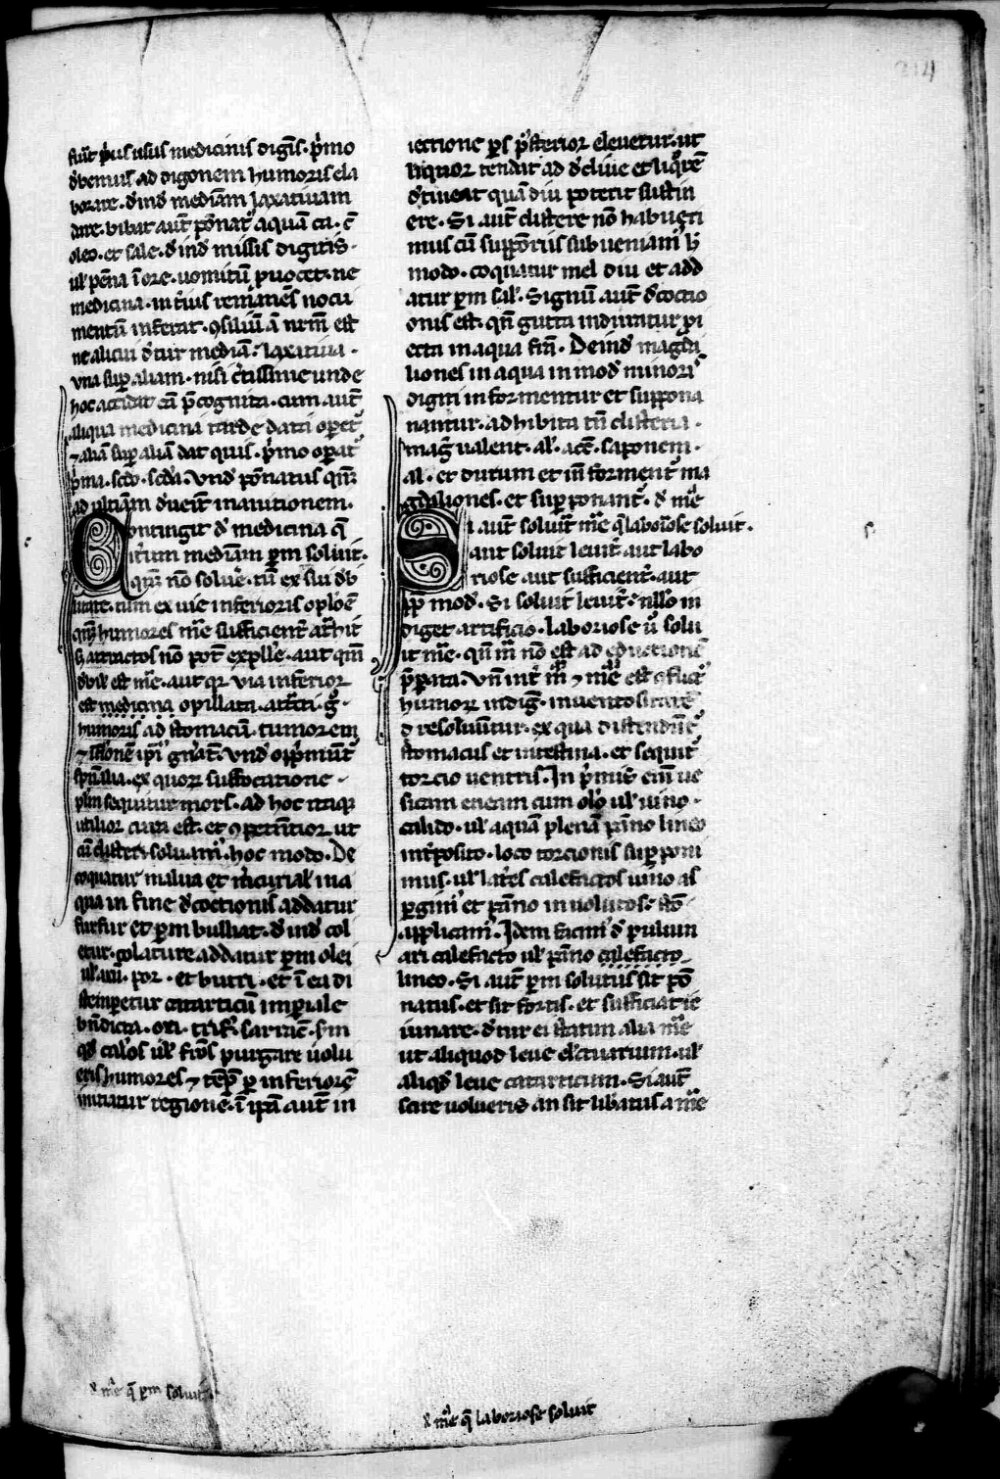 214
fiũt priꝰ usus medicinis digẽs. pͥmo
debemus ad digonem humoris ela
borare. deinde mediãm laxatiuam
dare. bibat aut̃ põnatꝰ aquã ca. c̃
oleo. et sale. deinde missis digitis.
ul' pẽna ĩ ore. uomitũ prouocet. ne
medicina. interius remanẽs nocu
mentũ inferat. ꝯsiliũ aũ nrm̃ est
ne alicui detur mediãa. laxatiua.
una sup aliam. nisi certissime unde
hoc accidat cũ p̃cognita. cum aut̃
aliqua medicina tarde data oper̃et
⁊ aliã sup aliã dat quis. pͥmo oper̃at
pͥma. scd̃o. scd̃a. Vnde põnatus qñq
ad ultiãm deueit̃ inanitionem.
Contingit de medicina q̃
it̃rum mediãm parum soluit.
qñq nõ soluẽ. tũ ex sui debi
litate. tum ex uie inferioris opiloẽ
qñq humores mẽ sufficient̃ att̃hit
s; attractos nõ pot̃ expelle. aut qm̃
debile est mẽ. aut qr uia inferior
est medicina opillata. attͣcti. g̊.
humoris ad stomacũ. tumorem
⁊ iflonẽ ip̃i gñat̃. Vnde opp̃munt̃
spũalia. ex quorum suffocatione.
plm̃ sequitur mors. ad hoc itaque
utilior cura est. et ꝯpetentior ut
cũ clisteri. soluam'. hoc modo. De
coquatur malua et m̃curial' in a
qua in fine decoctionis addatur
furfur et parum bulliat. deinde col
etur. colature addatur parum olei
et butiri. et ĩ ea di
stemperetur catarticũ imperiale
bñdicta.
qd̃ cal'os ul' frĩos purgare uolu
eris humores. ⁊ p inferiorẽ
mittatur regionẽ. ĩ ip̃a aut̃ in
iectione pars posterior eleuetur. ut
liquor tendat ad decliue et liquorẽ
detineat quãdiu poterit sustin
ere. Si aut̃ clistere nõ habueri
mus cũ suppositoriis subueniam' h'
modo. coquatur mel diu et add
atur parum sal'. Signũ aut̃ decoctio
onis est. qñ gutta induratur pi
ecta in aqua frĩ. Deinde magda
liones in aqua in modũ minoris
digiti informentur et suppona
nantur. adhibita tñ clisteria.
magis ualent. al'. acc̃. saponem.
al'. et durum et in eo formentur ma
gdaliones. et supponant̃. de mẽ
Si aut̃ soluit̃ mẽ q̃ laboriose soluit.
aut soluit leuit̃. aut labo
riose. aut sufficient̃. aut
sup̃ modũ. Si soluit leuit̃. nullo in
diget artificio. Laboriose u̾ solu
it mẽ. qñ mã nõ est ad eductionẽ
p̃parata. Vñ int̃ mãm ⁊ mẽ est ꝯflictꝰ
humorum indigñ.
resoluũtur. ex qua distendũt̃
stomacus et intestina. et sequit̃
torcio uentris. In pͥmis eñi ue
sicam eneam cum oleo ul' uino.
calido. ul' aquã plenã pãno lineo
interposito. loco torcionis suppon
mus. ul' lat̃es calefactos uino as
pergim' et pãno inuolutos
applicam'. Idem facim' de puluin
ari calefacto ul' pãno calefacto
lineo. Si aut̃ parum solutus sit põ
natus. et sit fortis. et sufficiat ie
iunare. detur ei statim alia mẽ
ut aliquod leue el'ctuarium. ul'
aliqd̃ leue catarticum. Si aut̃
scire uolueris an sit lib̃atus a mẽ
de mẽ q̃ parum soluit.
de mẽ q̃ laboriose soluit